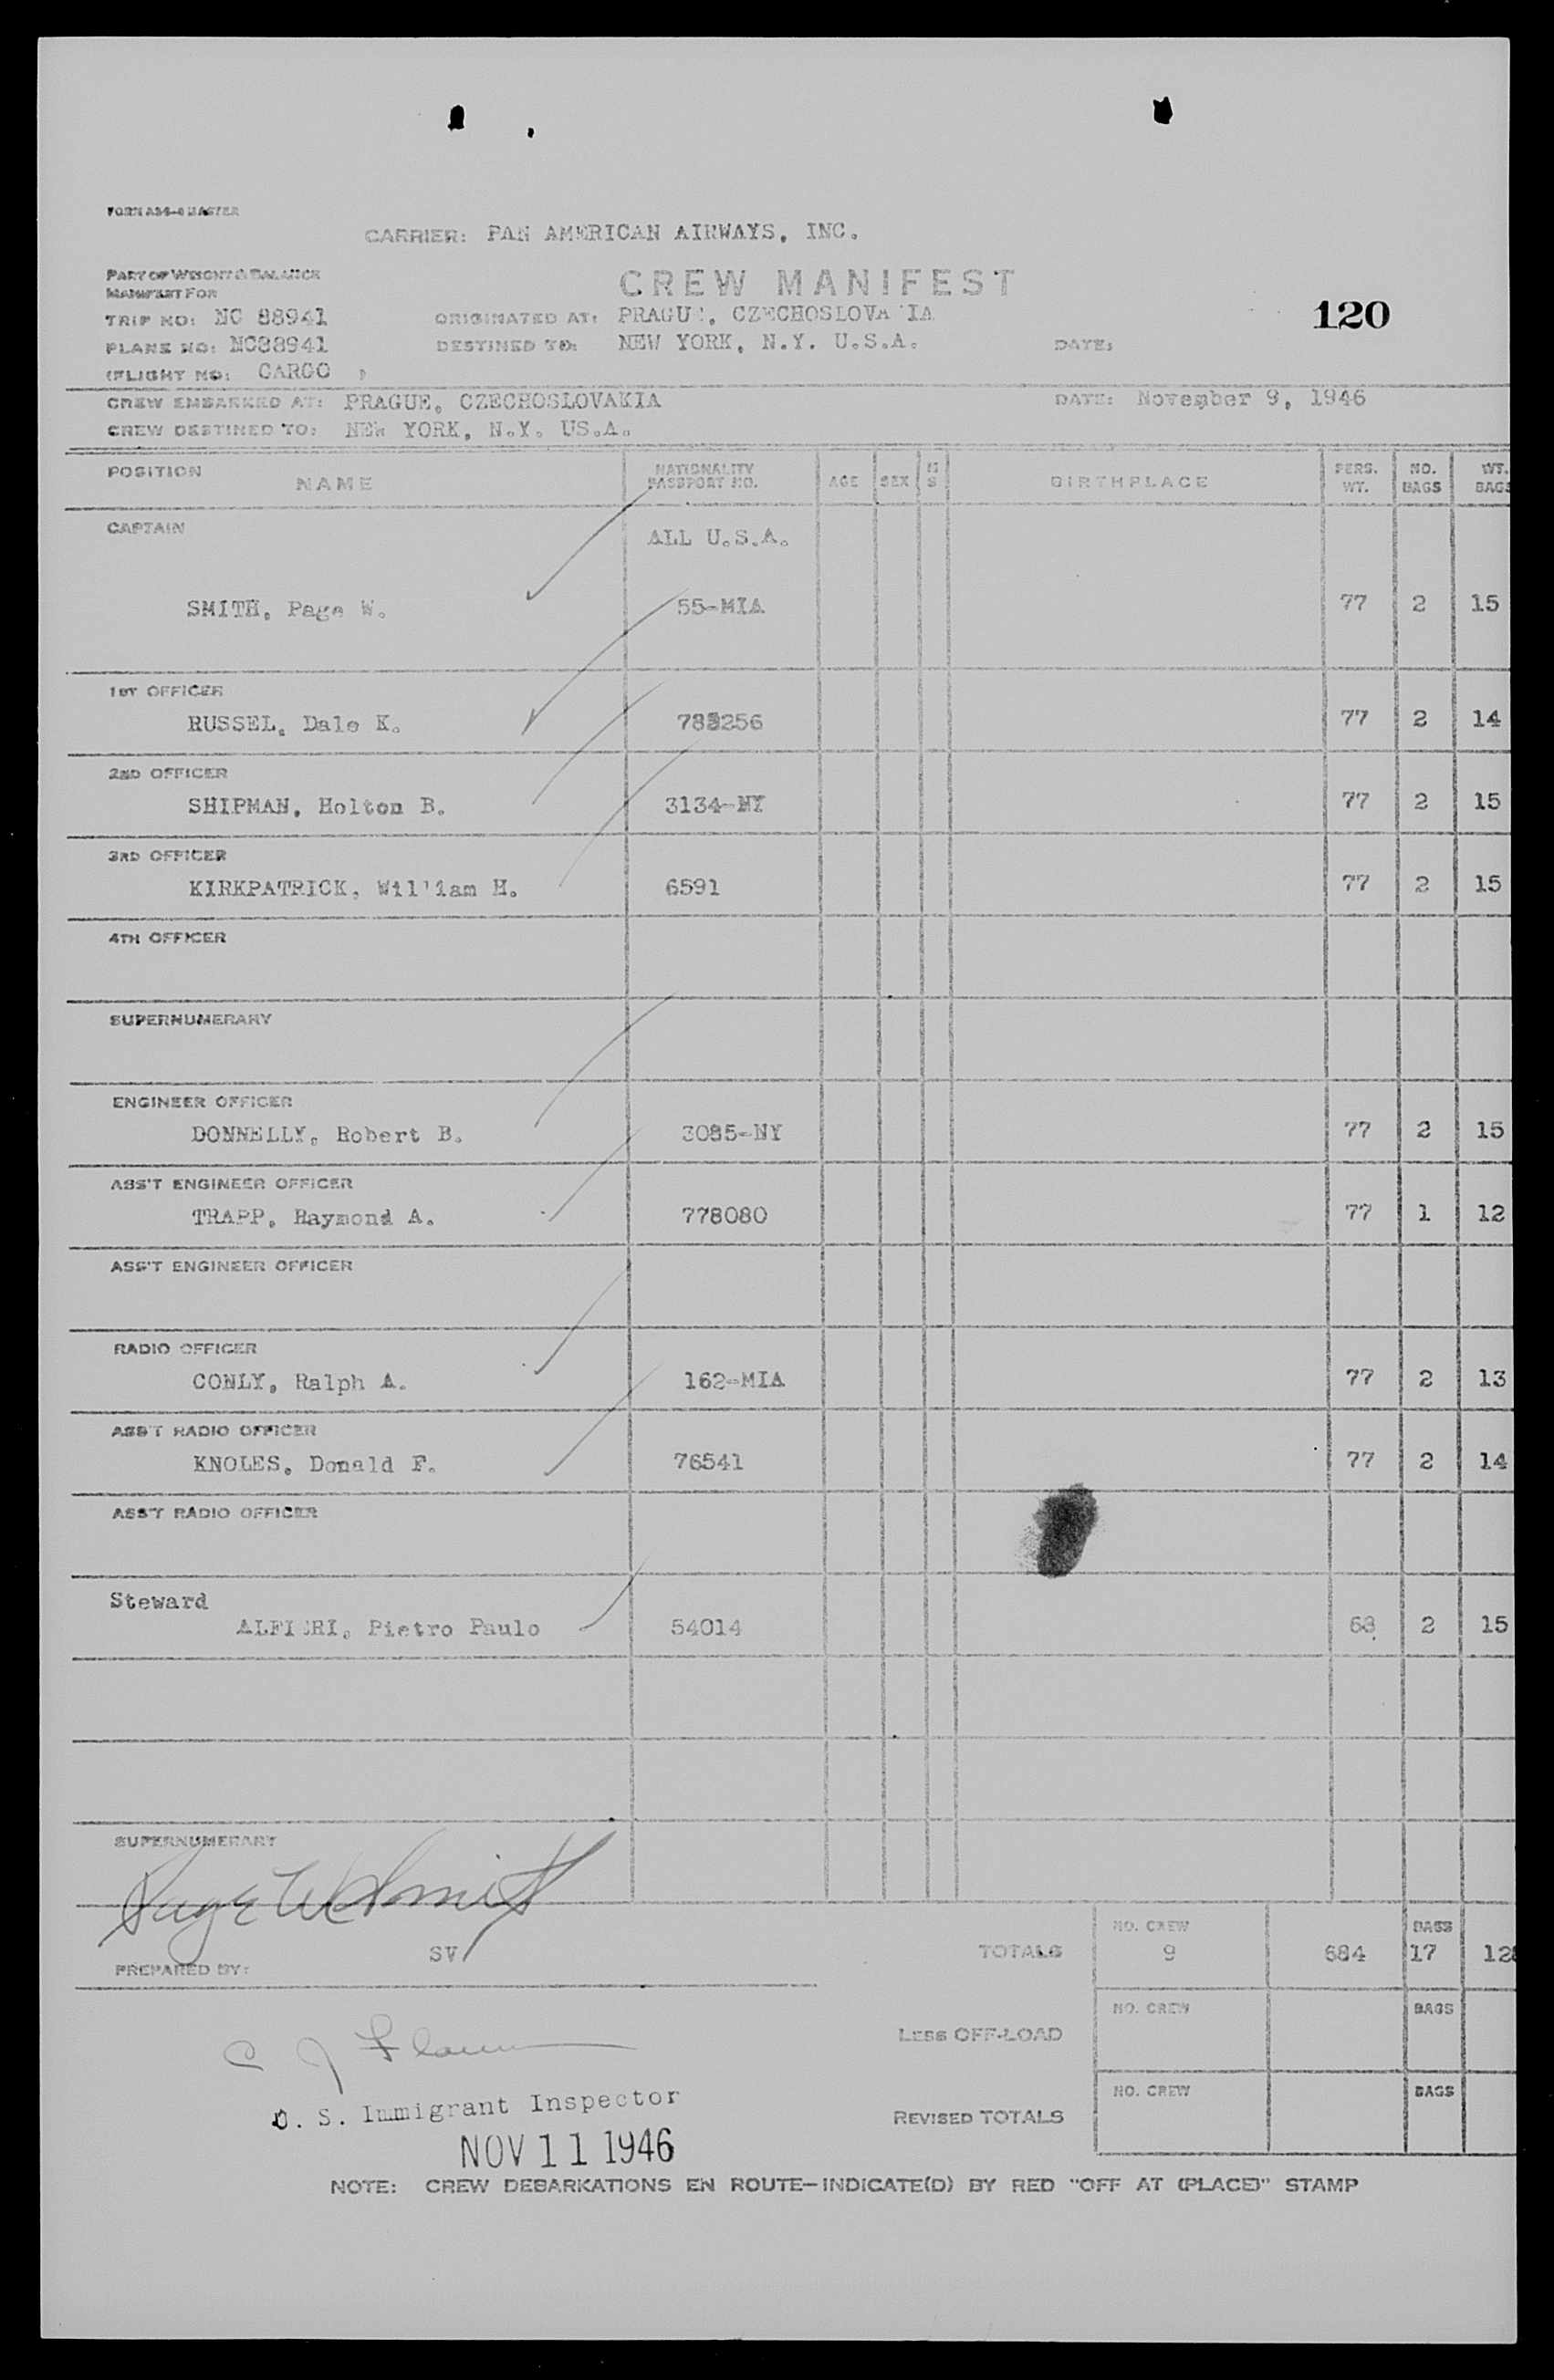 FORM A34-4 MASTER
CARRIER: PAN AMERICAN AIRWAYS, INC.
PART OF WEIGHT & BALANCE
MANIFEST FOR
CREW MANIFEST
120
TRIP NO: NC 88941 ORIGINATED AT: PRAGU , CZECHOSLOVA IA
PLANE NO: NC88941 DESTINED TO: NEW YORK, N.Y. U.S.A. DATE:
(FLIGHT NO: CARGO )
CREW EMBARKED AT: PRAGUE, CZECHOSLOVAKIA DATE: November 9, 1946
CREW DESTINED TO: NEW YORK, N.Y. US.A.
POSITION NAME NATIONALITY PASSPORT NO. AGE SEX M S BIRTHPLACE PERS. WT. NO. BAGS WT. BAGS
CAPTAIN ALL U.S.A.
SMITH, Page W. 55-MIA 77 2 15
1ST OFFICER
RUSSEL, Dale K. 783256 77 2 14
2ND OFFICER
SHIPMAN, Holton B. 3134-NY 77 2 15
3RD OFFICER
KIRKPATRICK, Wil'iam H. 6591 77 2 15
4TH OFFICER
SUPERNUMERARY
ENGINEER OFFICER
DONNELLY, Robert B. 3085-NY 77 2 15
ASS'T ENGINEER OFFICER
TRAPP, Raymond A. 778080 77 1 12
ASS'T ENGINEER OFFICER
RADIO OFFICER
CONLY, Ralph A. 162-MIA 77 2 13
ASS'T RADIO OFFICER
KNOLES, Donald F. 76541 77 2 14
ASS'T RADIO OFFICER
Steward
ALFI RI, Pietro Paulo 54014 68 2 15
SUPERNUMERARY
Page W Smith
NO. CREW BAGS
SV TOTALS 9 684 17 128
PREPARED BY:
NO. CREW BAGS
LESS OFF-LOAD
C J
U. S. Immigrant Inspector
NO. CREW BAGS
REVISED TOTALS
NOV 11 1946
NOTE: CREW DEBARKATIONS EN ROUTE-INDICATE(D) BY RED "OFF AT (PLACE)" STAMP